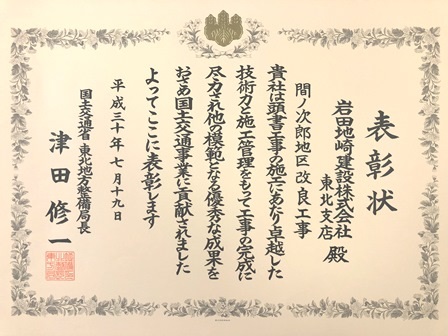 表彰状
岩田地崎建設株式会社
東北支店 殿
間ノ次郎地区改良工事
貴社は頭書工事の施工にあたり卓越した
技術力と施工管理をもって工事の完成に
尽力され他の模範となる優秀な成果を
おさめ国土交通事業に貢献されました
よってここに表彰します
平成三十年七月十九日
国土交通省 東北地方整備局長
津田修一